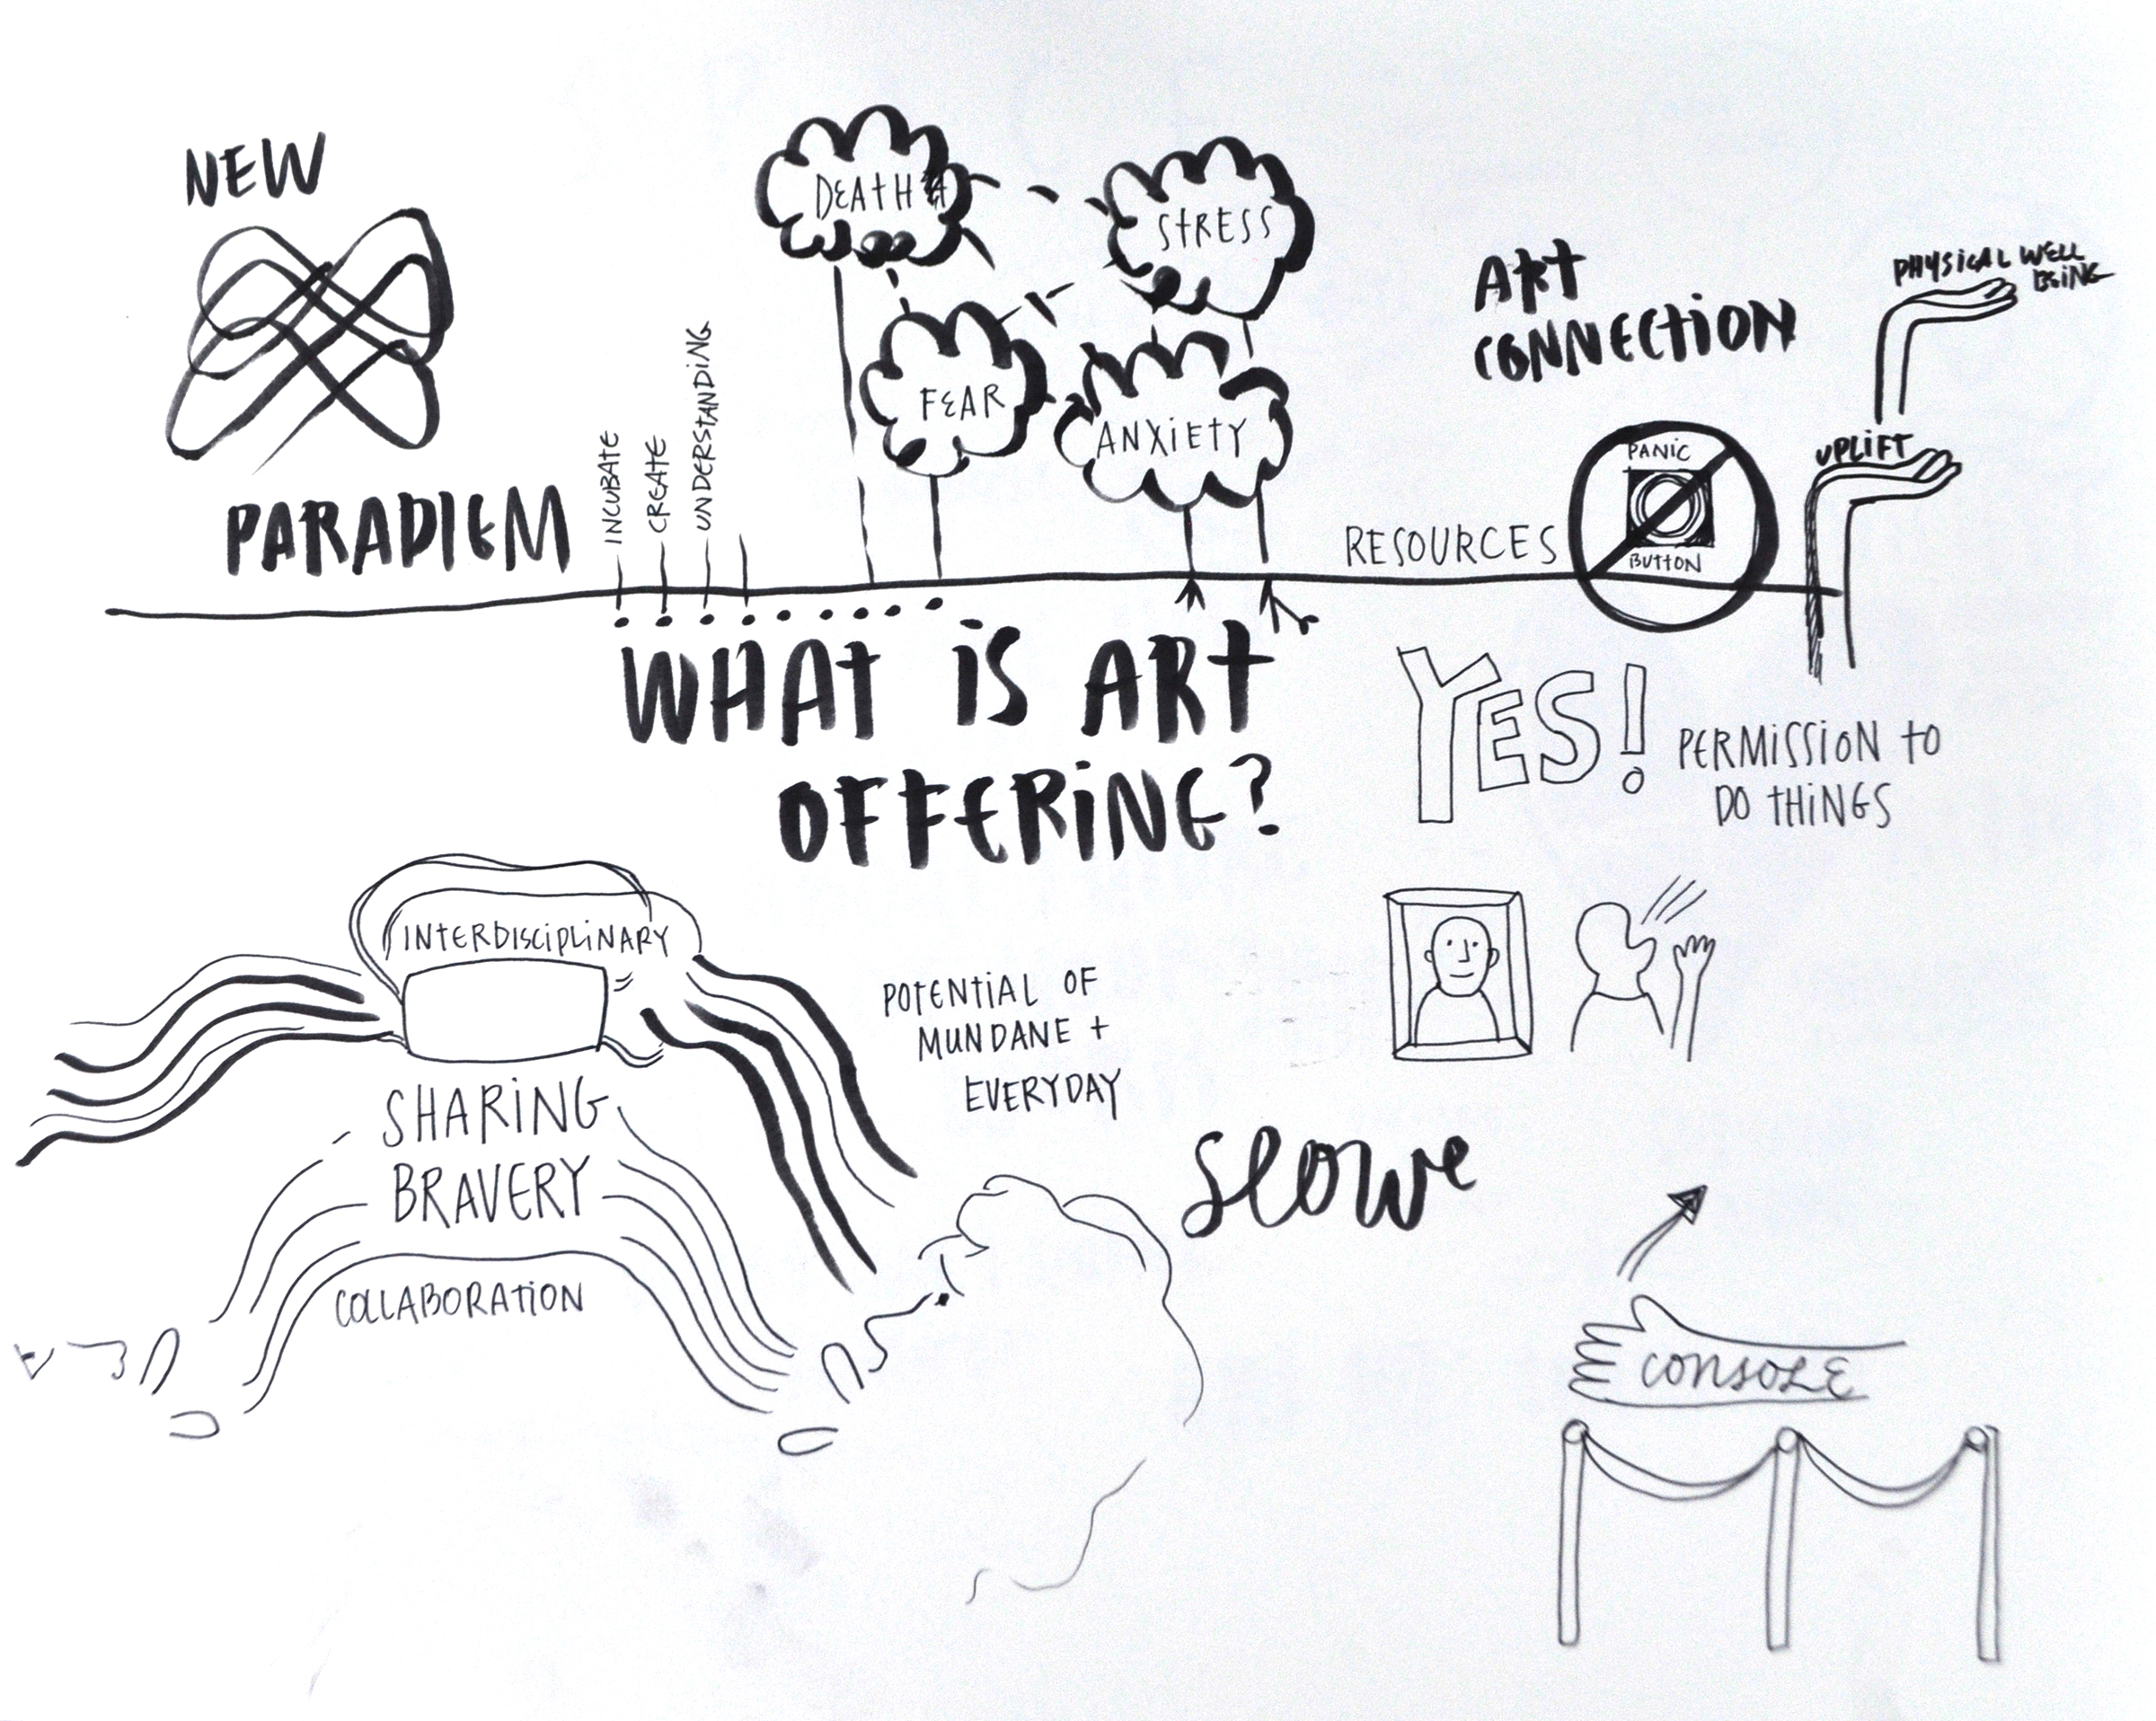 NEW
PARADIGM
INCUBATE
CREATE
UNDERSTANDING
DEATH
STRESS
FEAR
ANXIETY
ART
CONNECTION
PHYSICAL WELL
BEING
UPLIFT
RESOURCES
PANIC
BUTTON
WHAT IS ART
OFFERING?
YES!
PERMISSION TO
DO THINGS
INTERDISCIPLINARY
SHARING
BRAVERY
COLLABORATION
POTENTIAL OF
MUNDANE +
EVERYDAY
SLOWE
CONSOLE